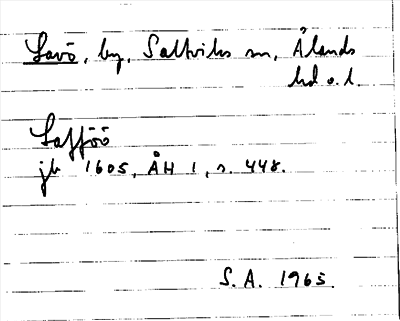 Lavö, by, Saltviks sn, Ålands
hd o. l.
Lafföö
jb 1605, ÅH 1, s. 448.
S. A. 1965